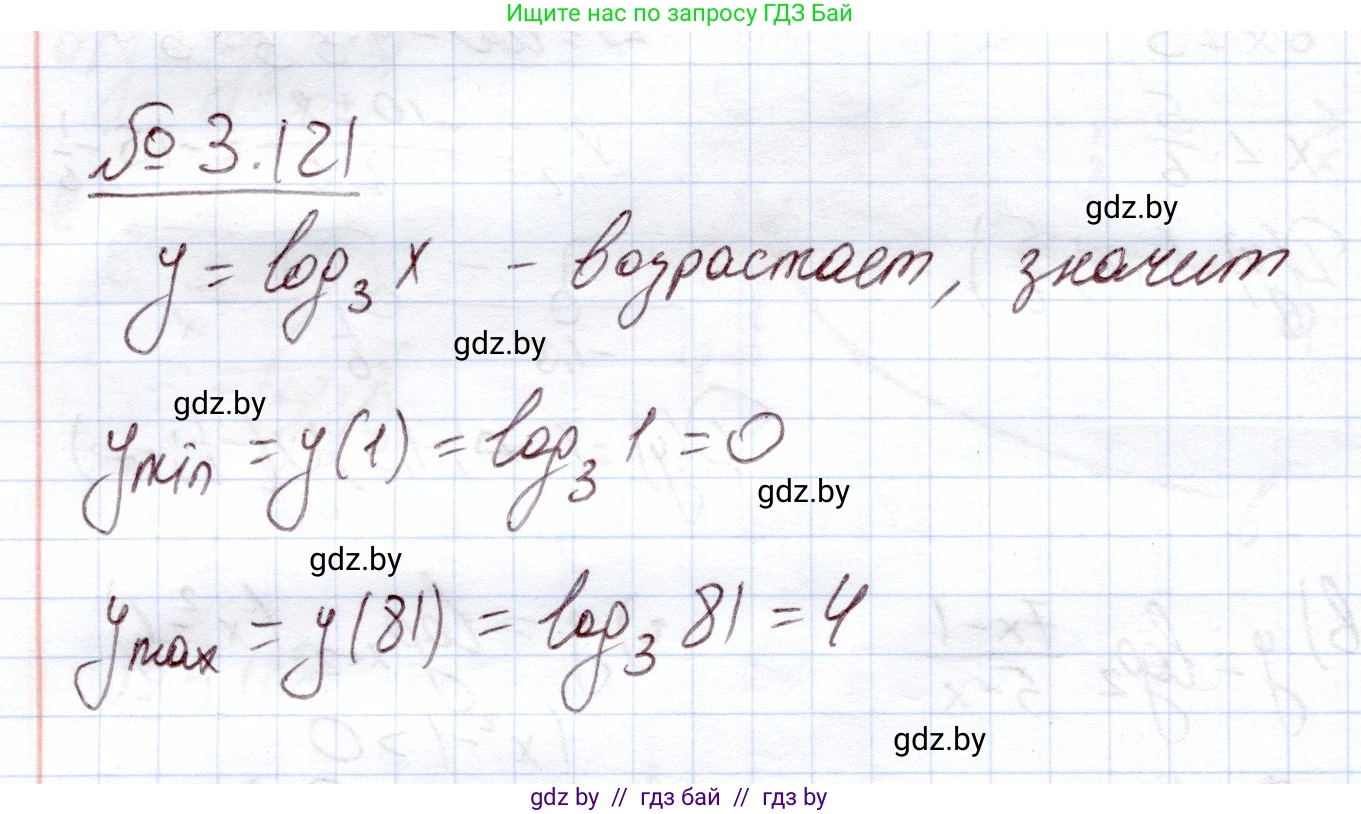 Ищите нас по запросу ГДЗ Бай
№ 3.121
gdz.by
y = log₃ x - возрастает, значит
gdz.by
gdz.by
y_min = y(1) = log₃ 1 = 0
gdz.by
gdz.by
y_max = y(81) = log₃ 81 = 4
gdz.by
gdz by // гдз бай // гдз by